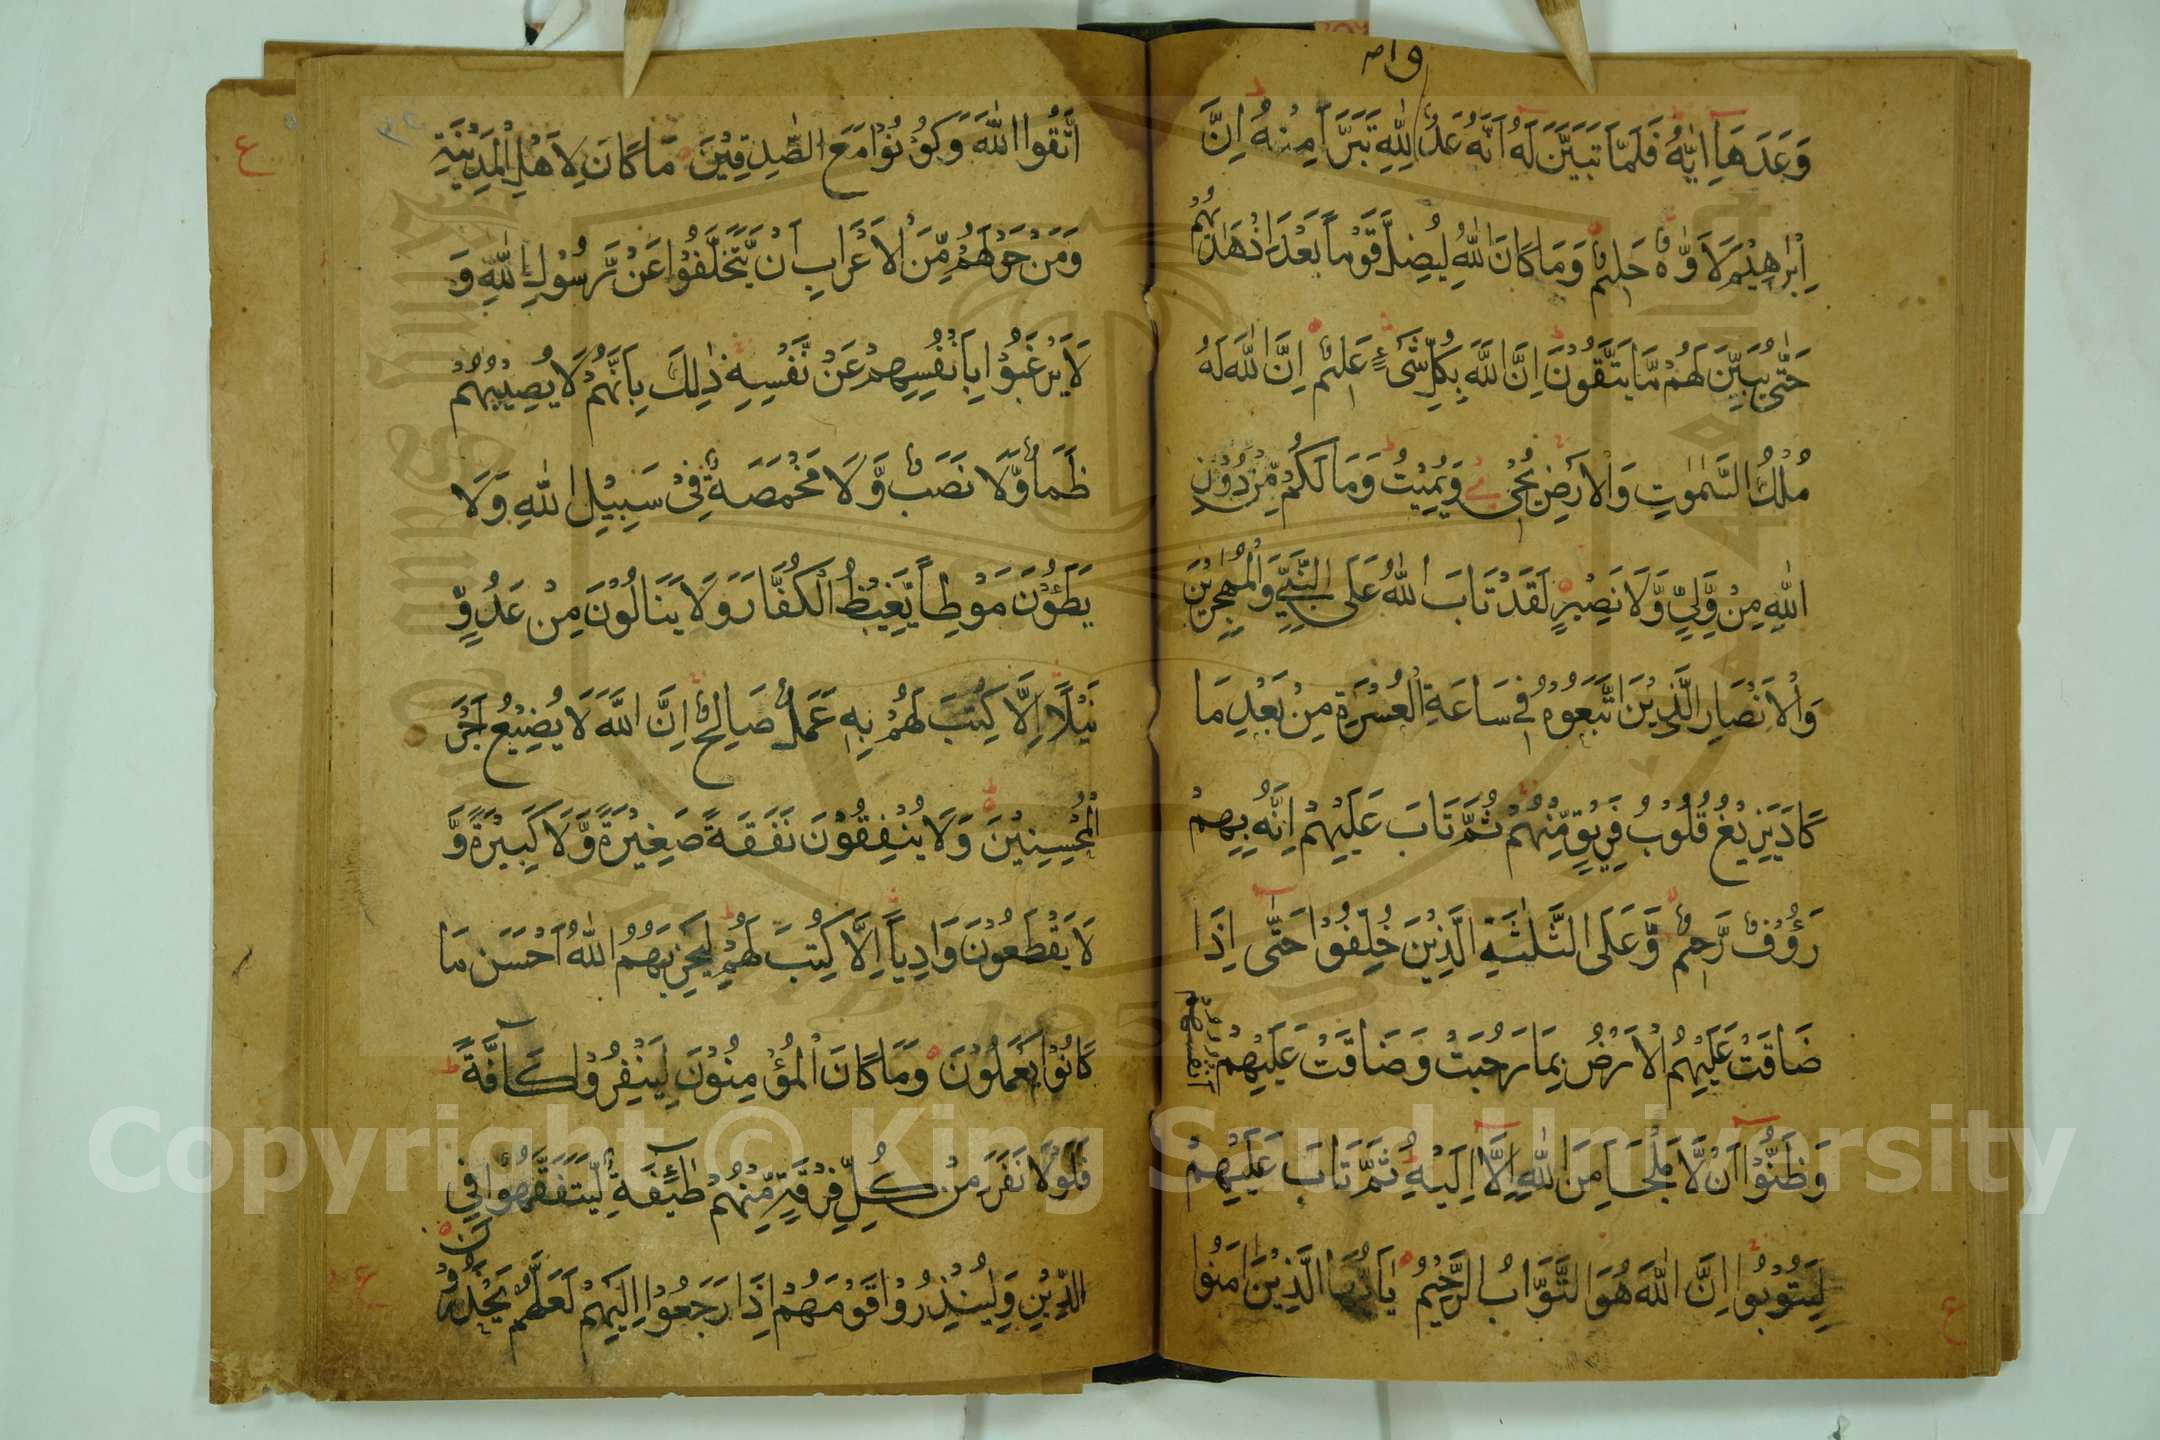 وَّعَدَهَآ اِیَّاهُ فَلَمَّا تَبَیَّنَ لَهٗ اَنَّهٗ عَدُوٌّ لِلّٰهِ تَبَرَّاَ مِنْهُ اِنَّ
اِبْرٰهِیْمَ لَاَوَّاهٌ حَلِیْمٌ وَمَا كَانَ اللّٰهُ لِیُضِلَّ قَوْماً بَعْدَ اِذْ هَدٰىهُمْ
حَتّٰى یُبَیِّنَ لَهُمْ مَّا یَتَّقُوْنَ اِنَّ اللّٰهَ بِكُلِّ شَیْءٍ عَلِیْمٌ اِنَّ اللّٰهَ لَهٗ
مُلْكُ السَّمٰوٰتِ وَالْاَرْضِ یُحْیٖ وَیُمِیْتُ وَمَا لَكُمْ مِّنْ دُوْنِ
اللّٰهِ مِنْ وَّلِیٍّ وَّلَا نَصِیْرٍ لَقَدْ تَابَ اللّٰهُ عَلَى النَّبِیِّ وَالْمُهٰجِرِیْنَ
وَالْاَنْصَارِ الَّذِیْنَ اتَّبَعُوْهُ فِیْ سَاعَةِ الْعُسْرَةِ مِنْ بَعْدِ مَا
كَادَ یَزِیْغُ قُلُوْبُ فَرِیْقٍ مِّنْهُمْ ثُمَّ تَابَ عَلَیْهِمْ اِنَّهٗ بِهِمْ
رَءُوْفٌ رَّحِیْمٌ وَّعَلَى الثَّلٰثَةِ الَّذِیْنَ خُلِّفُوْا حَتّٰى اِذَا
ضَاقَتْ عَلَیْهِمُ الْاَرْضُ بِمَا رَحُبَتْ وَضَاقَتْ عَلَیْهِمْ
اَنْفُسُهُمْ
وَظَنُّوْا اَنْ لَّا مَلْجَاَ مِنَ اللّٰهِ اِلَّا اِلَیْهِ ثُمَّ تَابَ عَلَیْهِمْ
لِیَتُوْبُوْا اِنَّ اللّٰهَ هُوَ التَّوَّابُ الرَّحِیْمُ یٰاَیُّهَا الَّذِیْنَ اٰمَنُوا
ع
ع
اتَّقُوا اللّٰهَ وَكُوْنُوْا مَعَ الصّٰدِقِیْنَ مَا كَانَ لِاَهْلِ الْمَدِیْنَةِ
وَمَنْ حَوْلَهُمْ مِّنَ الْاَعْرَابِ اَنْ یَّتَخَلَّفُوْا عَنْ رَّسُوْلِ اللّٰهِ وَ
لَا یَرْغَبُوْا بِاَنْفُسِهِمْ عَنْ نَّفْسِهٖ ذٰلِكَ بِاَنَّهُمْ لَا یُصِیْبُهُمْ
ظَمَاٌ وَّلَا نَصَبٌ وَّلَا مَخْمَصَةٌ فِیْ سَبِیْلِ اللّٰهِ وَلَا
یَطَئُوْنَ مَوْطِئاً یَّغِیْظُ الْكُفَّارَ وَلَا یَنَالُوْنَ مِنْ عَدُوٍّ
نَّیْلًا اِلَّا كُتِبَ لَهُمْ بِهٖ عَمَلٌ صَالِحٌ اِنَّ اللّٰهَ لَا یُضِیْعُ اَجْرَ
الْمُحْسِنِیْنَ وَلَا یُنْفِقُوْنَ نَفَقَةً صَغِیْرَةً وَّلَا كَبِیْرَةً وَّ
لَا یَقْطَعُوْنَ وَادِیاً اِلَّا كُتِبَ لَهُمْ لِیَجْزِیَهُمُ اللّٰهُ اَحْسَنَ مَا
كَانُوْا یَعْمَلُوْنَ وَمَا كَانَ الْمُؤْمِنُوْنَ لِیَنْفِرُوْا كَآفَّةً
فَلَوْلَا نَفَرَ مِنْ كُلِّ فِرْقَةٍ مِّنْهُمْ طَآئِفَةٌ لِّیَتَفَقَّهُوْا فِی
الدِّیْنِ وَلِیُنْذِرُوْا قَوْمَهُمْ اِذَا رَجَعُوْا اِلَیْهِمْ لَعَلَّهُمْ یَحْذَرُوْنَ
ع
Copyright © King Saud University